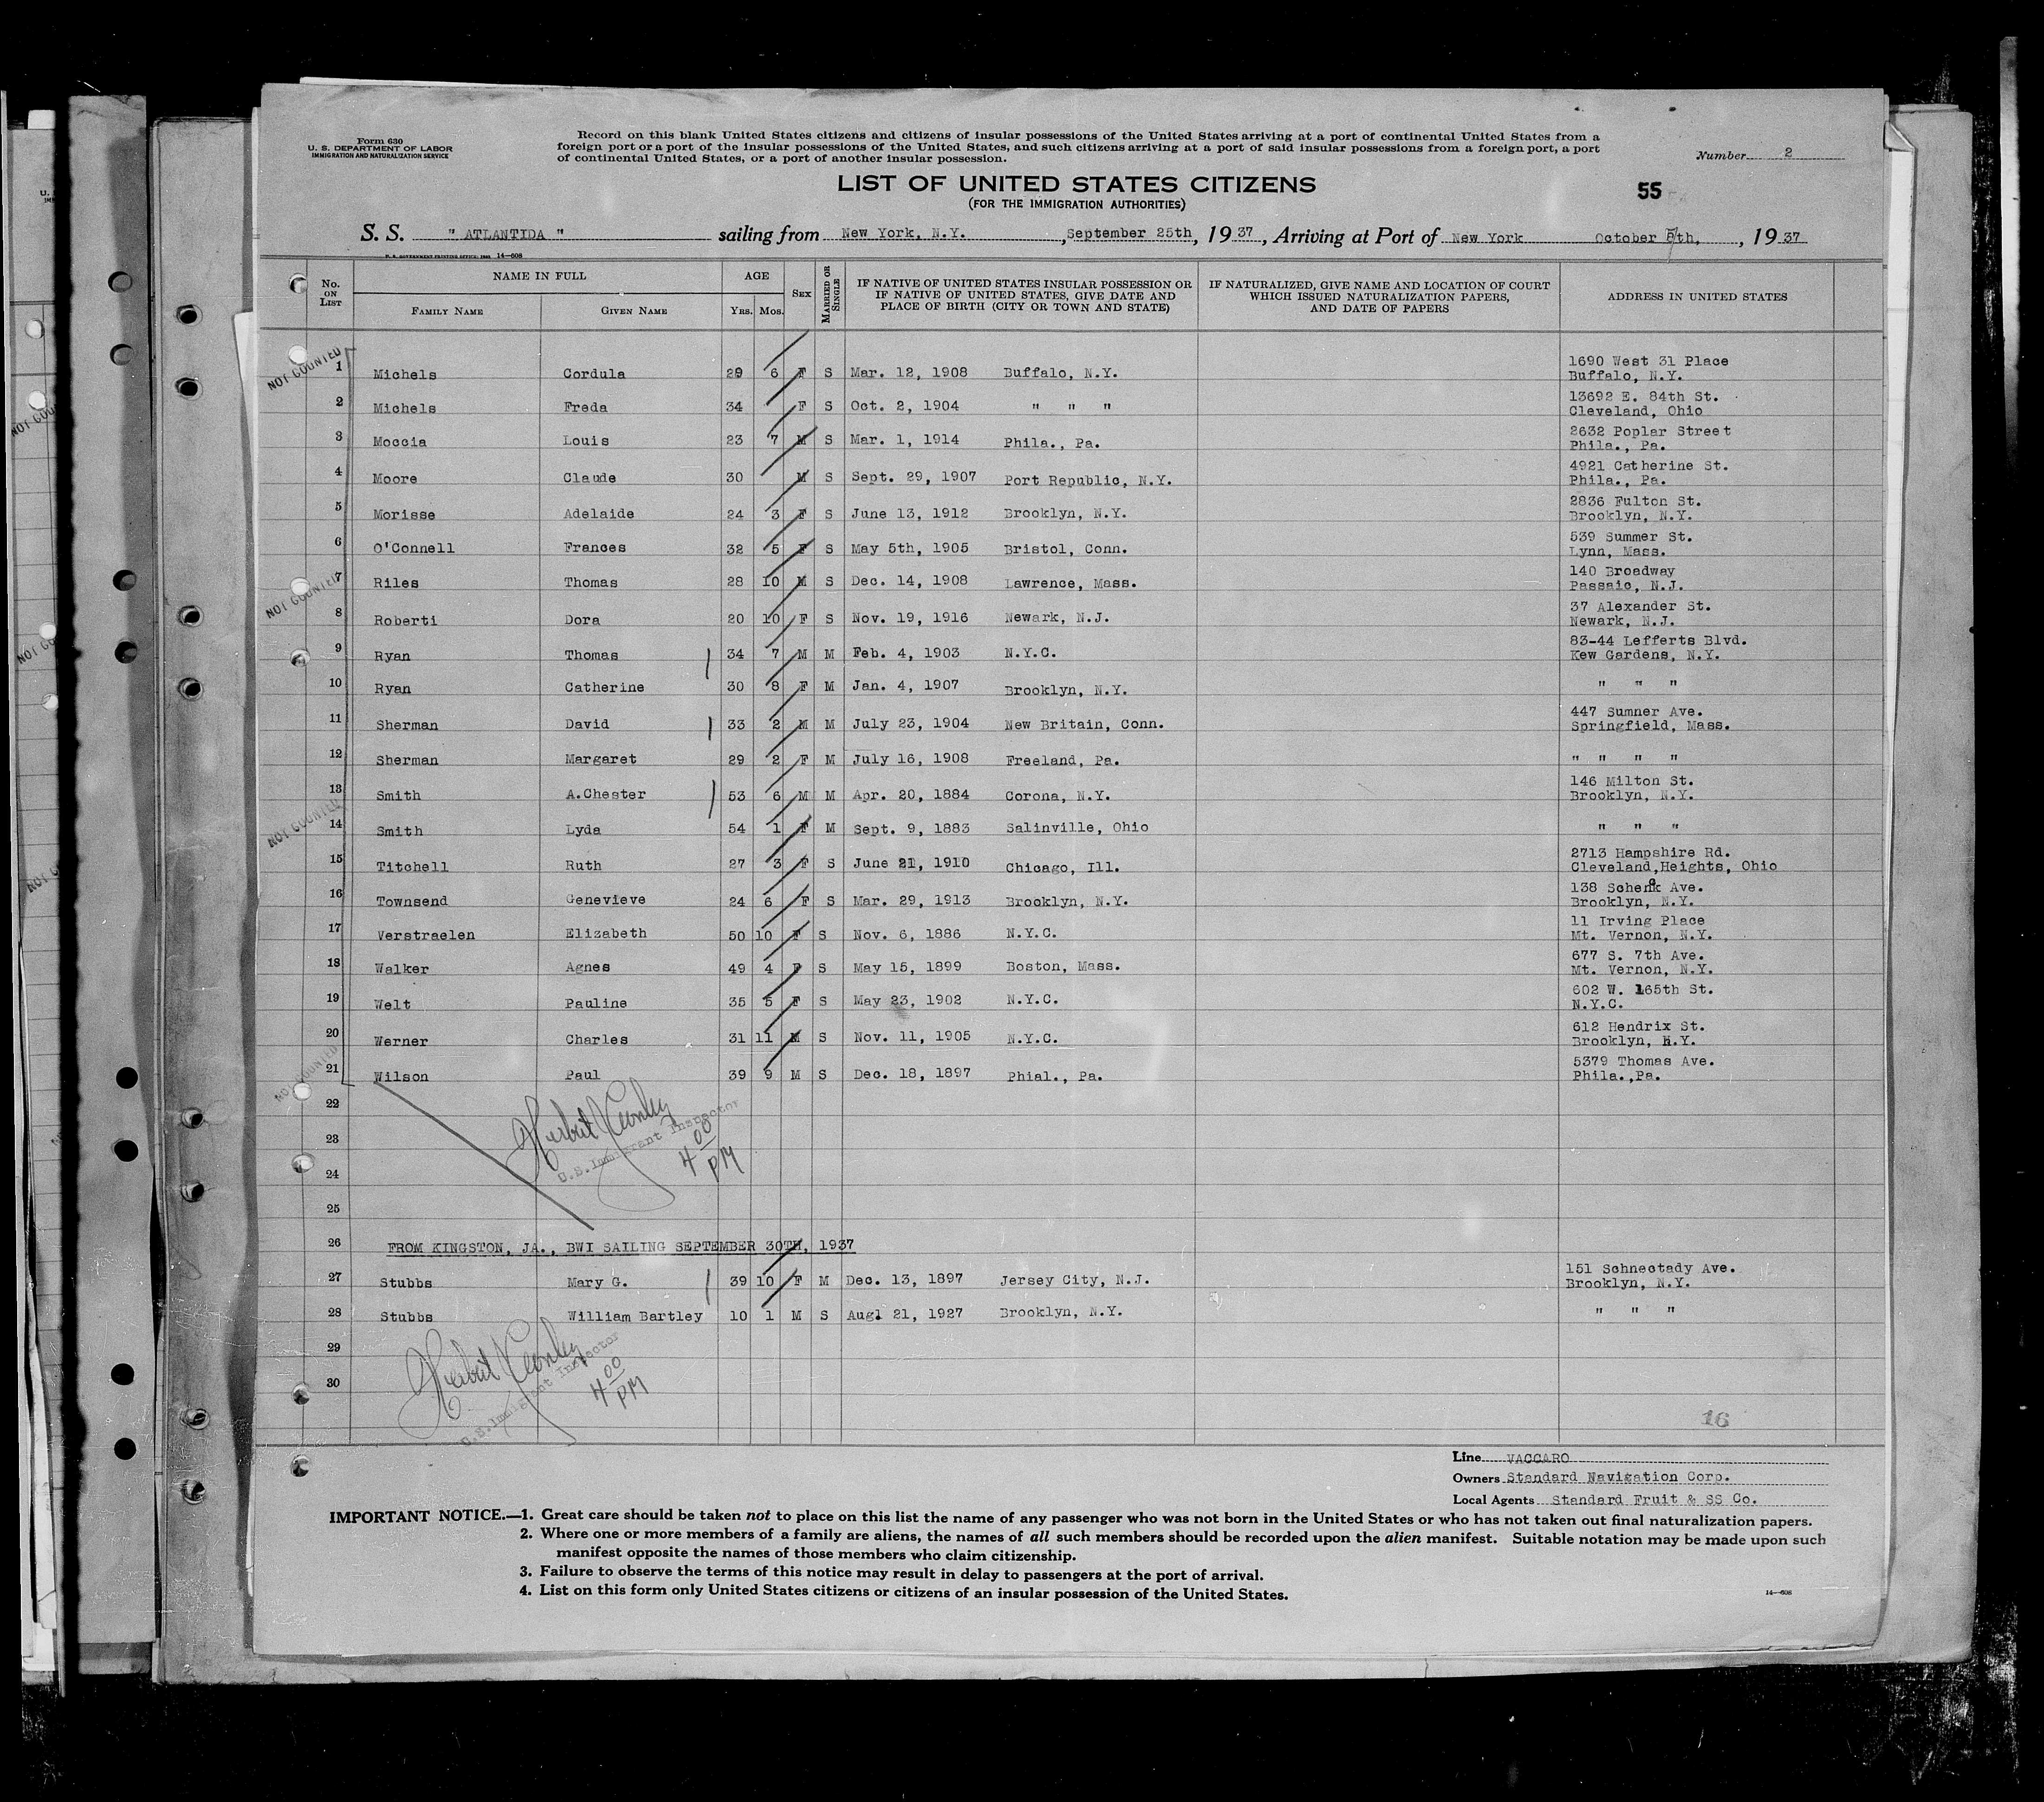 Form 630
U. S. DEPARTMENT OF LABOR
IMMIGRATION AND NATURALIZATION SERVICE
Record on this blank United States citizens and citizens of insular possessions of the United States arriving at a port of continental United States from a
foreign port or a port of the insular possessions of the United States, and such citizens arriving at a port of said insular possessions from a foreign port, a port
of continental United States, or a port of another insular possession.
Number 2
LIST OF UNITED STATES CITIZENS
(FOR THE IMMIGRATION AUTHORITIES)
55
S. S. " ATLANTIDA " sailing from New York, N.Y. , September 25th, 1937, Arriving at Port of New York October 7th, , 1937
U. S. GOVERNMENT PRINTING OFFICE: 14—608
No. ON LIST NAME IN FULL AGE SEX MARRIED OR SINGLE IF NATIVE OF UNITED STATES INSULAR POSSESSION OR IF NATIVE OF UNITED STATES, GIVE DATE AND PLACE OF BIRTH (CITY OR TOWN AND STATE) IF NATURALIZED, GIVE NAME AND LOCATION OF COURT WHICH ISSUED NATURALIZATION PAPERS, AND DATE OF PAPERS ADDRESS IN UNITED STATES
FAMILY NAME GIVEN NAME YRS. MOS.
NOT COUNTED
1 Michels Cordula 29 6 F S Mar. 12, 1908 Buffalo, N.Y. 1690 West 31 Place
Buffalo, N.Y.
2 Michels Freda 34 F S Oct. 2, 1904 " " " 13692 E. 84th St.
Cleveland, Ohio
3 Moccia Louis 23 7 M S Mar. 1, 1914 Phila., Pa. 2632 Poplar Street
Phila., Pa.
4 Moore Claude 30 M S Sept. 29, 1907 Port Republic, N.Y. 4921 Catherine St.
Phila., Pa.
5 Morisse Adelaide 24 3 F S June 13, 1912 Brooklyn, N.Y. 2836 Fulton St.
Brooklyn, N.Y.
6 O'Connell Frances 32 5 F S May 5th, 1905 Bristol, Conn. 539 Summer St.
Lynn, Mass.
NOT COUNTED
7 Riles Thomas 28 10 M S Dec. 14, 1908 Lawrence, Mass. 140 Broadway
Passaic, N.J.
8 Roberti Dora 20 10 F S Nov. 19, 1916 Newark, N.J. 37 Alexander St.
Newark, N.J.
9 Ryan Thomas 34 7 M M Feb. 4, 1903 N.Y.C. 83-44 Lefferts Blvd.
Kew Gardens, N.Y.
10 Ryan Catherine 30 8 F M Jan. 4, 1907 Brooklyn, N.Y. " " "
11 Sherman David 33 2 M M July 23, 1904 New Britain, Conn. 447 Sumner Ave.
Springfield, Mass.
12 Sherman Margaret 29 2 F M July 16, 1908 Freeland, Pa. " " " "
13 Smith A.Chester 53 6 M M Apr. 20, 1884 Corona, N.Y. 146 Milton St.
Brooklyn, N.Y.
NOT COUNTED
14 Smith Lyda 54 1 F M Sept. 9, 1883 Salinville, Ohio " " "
15 Titchell Ruth 27 3 F S June 21, 1910 Chicago, Ill. 2713 Hampshire Rd.
Cleveland,Heights, Ohio
16 Townsend Genevieve 24 6 F S Mar. 29, 1913 Brooklyn, N.Y. 138 Schenk Ave.
Brooklyn, N.Y.
17 Verstraelen Elizabeth 50 10 F S Nov. 6, 1886 N.Y.C. 11 Irving Place
Mt. Vernon, N.Y.
18 Walker Agnes 49 4 F S May 15, 1899 Boston, Mass. 677 S. 7th Ave.
Mt. Vernon, N.Y.
19 Welt Pauline 35 5 F S May 23, 1902 N.Y.C. 602 W. 165th St.
N.Y.C.
20 Werner Charles 31 11 M S Nov. 11, 1905 N.Y.C. 612 Hendrix St.
Brooklyn, N.Y.
NOT COUNTED
21 Wilson Paul 39 9 M S Dec. 18, 1897 Phial., Pa. 5379 Thomas Ave.
Phila.,Pa.
22
Herbert Keonley
U.S. Immigrant Inspector
4 00 PM
23
24
25
26 FROM KINGSTON, JA., BWI SAILING SEPTEMBER 30TH, 1937
27 Stubbs Mary G. 39 10 F M Dec. 13, 1897 Jersey City, N.J. 151 Schnectady Ave.
Brooklyn, N.Y.
28 Stubbs William Bartley 10 1 M S Augl 21, 1927 Brooklyn, N.Y. " " "
29
Herbert Keonley
U.S. Immigrant Inspector
4 00 PM
30
16
Line VACCARO
Owners Standard Navigation Corp.
Local Agents Standard Fruit & SS Co.
IMPORTANT NOTICE.—1. Great care should be taken not to place on this list the name of any passenger who was not born in the United States or who has not taken out final naturalization papers.
2. Where one or more members of a family are aliens, the names of all such members should be recorded upon the alien manifest. Suitable notation may be made upon such
manifest opposite the names of those members who claim citizenship.
3. Failure to observe the terms of this notice may result in delay to passengers at the port of arrival.
4. List on this form only United States citizens or citizens of an insular possession of the United States.
14—608